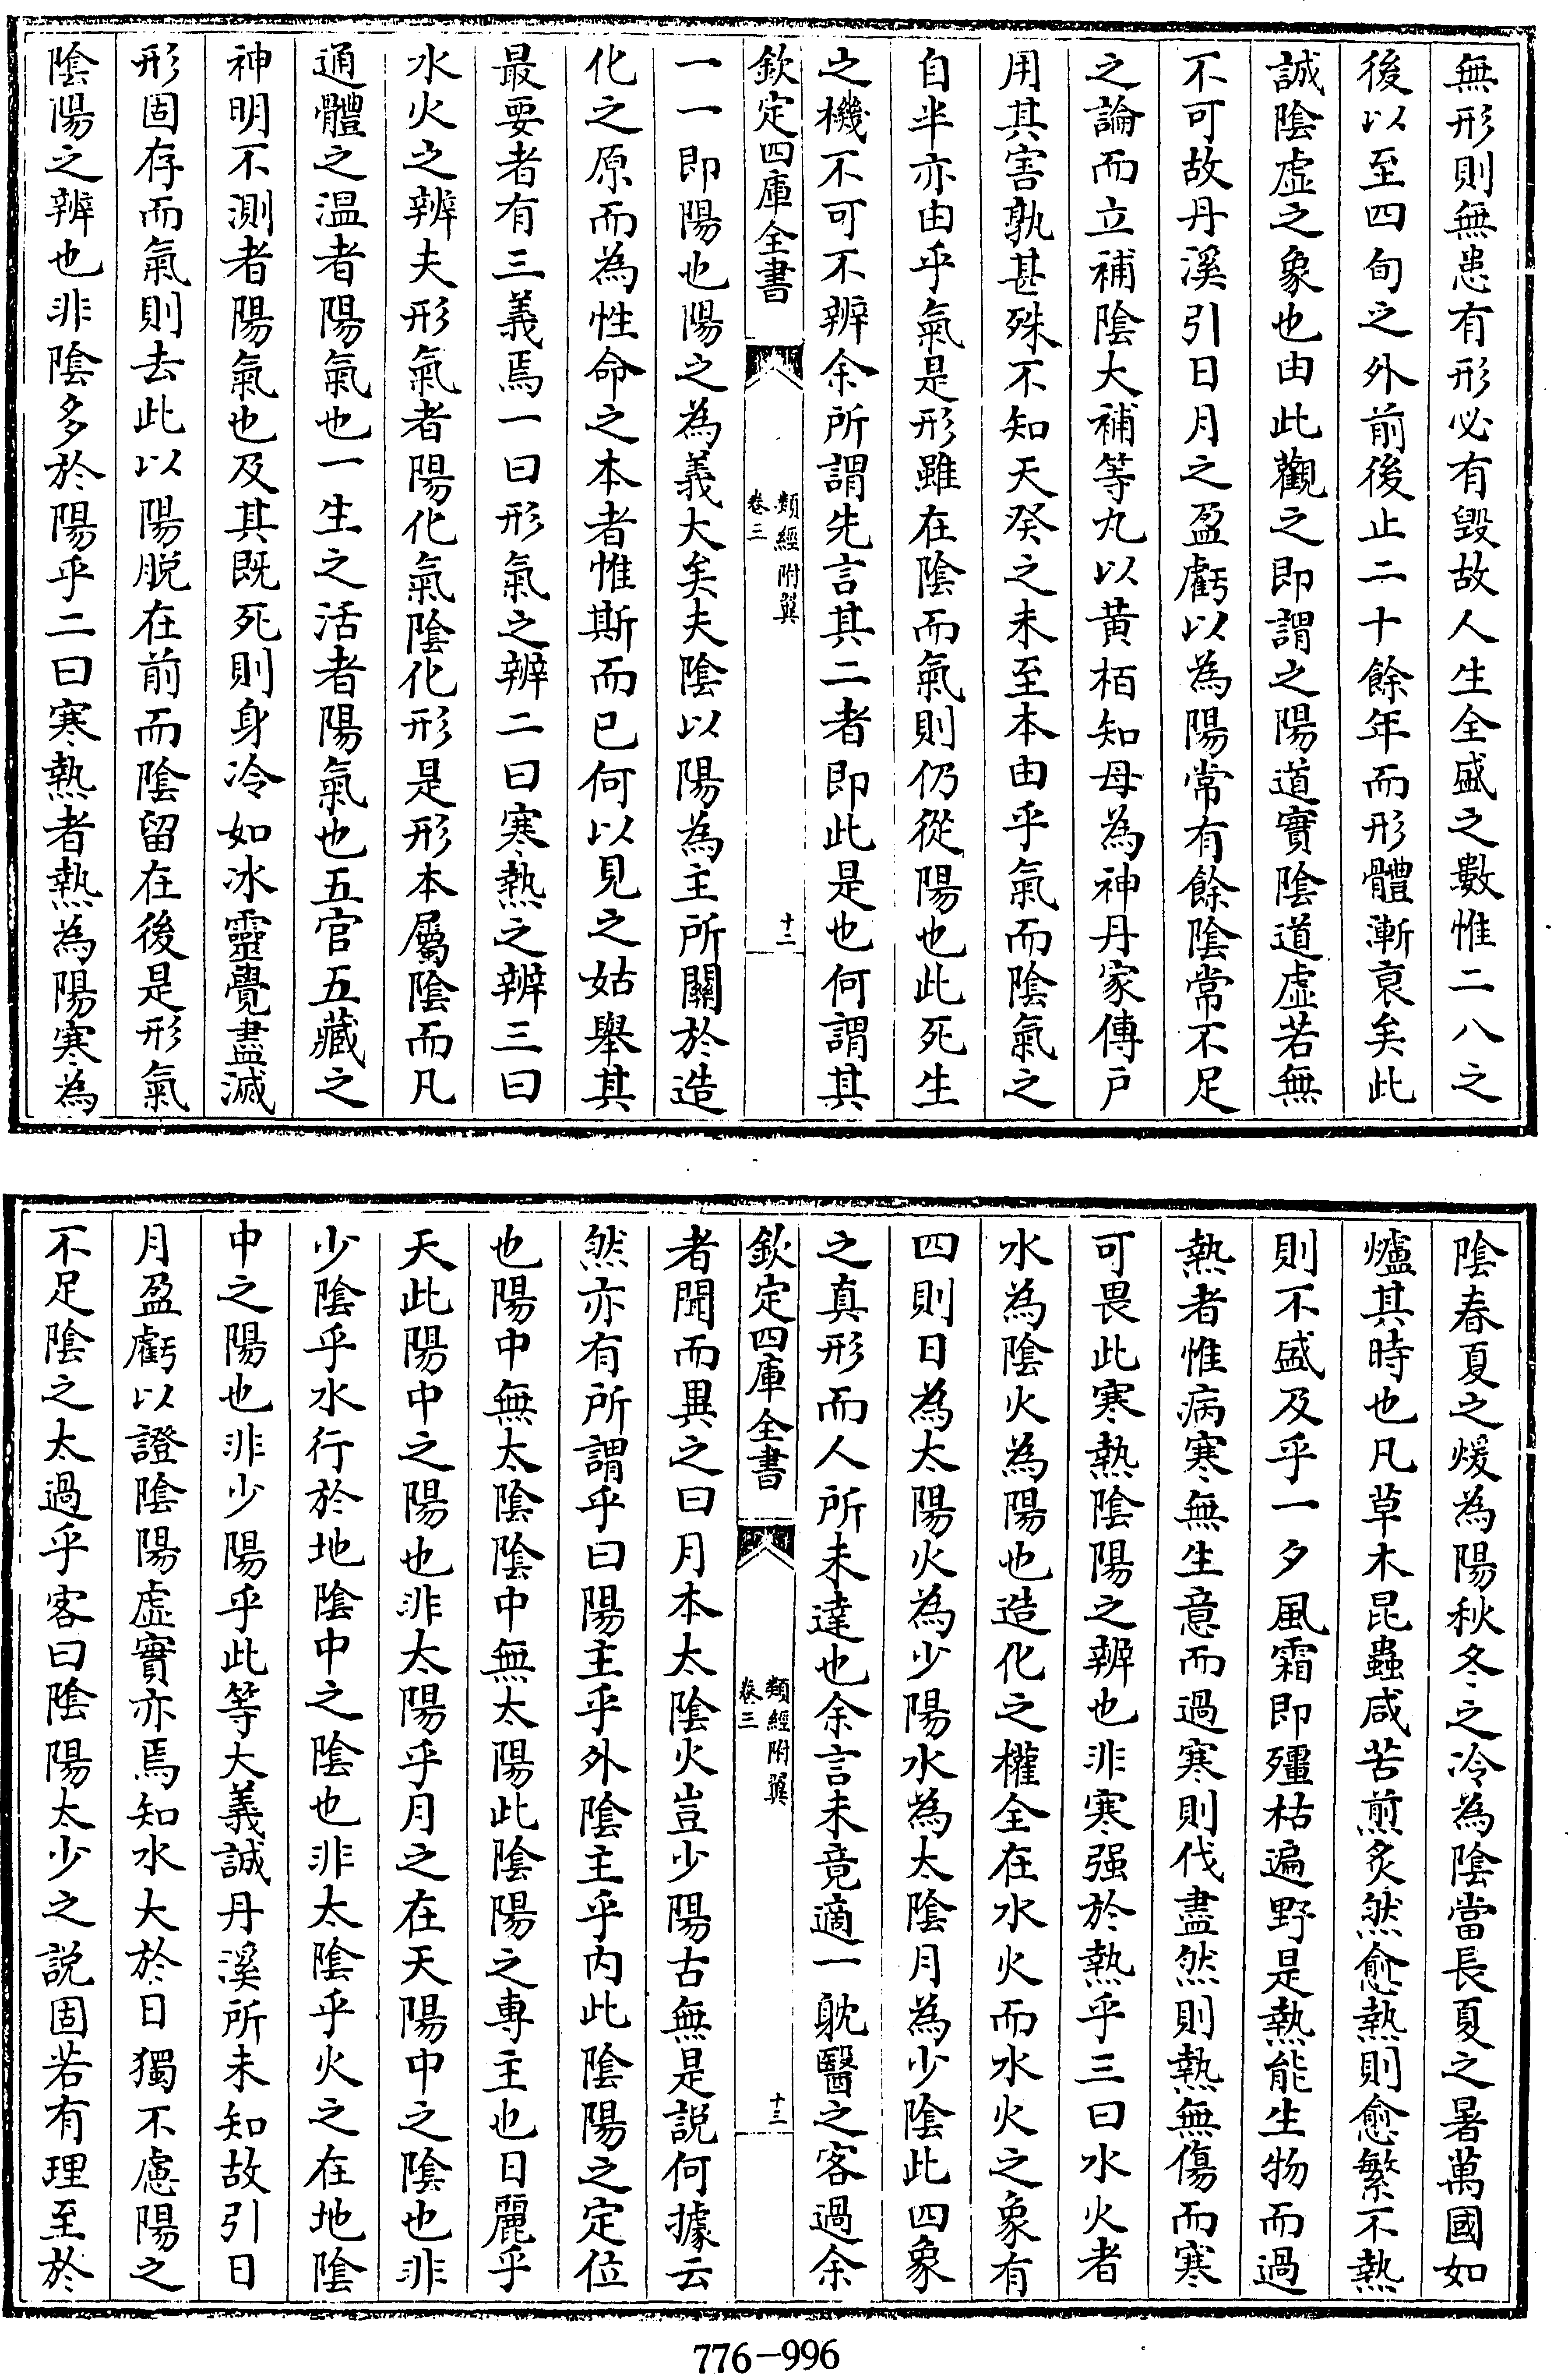 無形則無患有形必有毀故人生全盛之數惟二八之
後以至四旬之外前後止二十餘年而形體漸衰矣此
誠陰虛之象也由此觀之即謂之陽道實陰道虛若無
不可故丹溪引日月之盈虧以為陽常有餘陰常不足
之論而立補陰大補等丸以黄栢知母為神丹家傳户
用其害孰甚殊不知天癸之未至本由乎氣而陰氣之
自半亦由乎氣是形雖在陰而氣則仍從陽也此死生
之機不可不辨余所謂先言其二者即此是也何謂其
欽定四庫全書
類經附翼
卷三
十二
一一即陽也陽之為義大矣夫陰以陽為主所關於造
化之原而為性命之本者惟斯而已何以見之姑舉其
最要者有三義焉一曰形氣之辨二曰寒熱之辨三曰
水火之辨夫形氣者陽化氣陰化形是形本屬陰而凡
通體之温者陽氣也一生之活者陽氣也五官五藏之
神明不測者陽氣也及其既死則身冷如冰靈覺盡滅
形固存而氣則去此以陽脱在前而陰留在後是形氣
陰陽之辨也非陰多於陽乎二曰寒熱者熱為陽寒為
陰春夏之煖為陽秋冬之冷為陰當長夏之暑萬國如
爐其時也凡草木昆蟲咸苦煎炙然愈熱則愈繁不熱
則不盛及乎一夕風霜即殭枯遍野是熱能生物而過
熱者惟病寒無生意而過寒則伐盡然則熱無傷而寒
可畏此寒熱陰陽之辨也非寒强於熱乎三曰水火者
水為陰火為陽也造化之權全在水火而水火之象有
四則日為太陽火為少陽水為太陰月為少陰此四象
之真形而人所未達也余言未竟適一躭醫之客過余
欽定四庫全書
類經附翼
卷三
十三
者聞而異之曰月本太陰火豈少陽古無是説何據云
然亦有所謂乎曰陽主乎外陰主乎内此陰陽之定位
也陽中無太陰陰中無太陽此陰陽之專主也日麗乎
天此陽中之陽也非太陽乎月之在天陽中之陰也非
少陰乎水行於地陰中之陰也非太陰乎火之在地陰
中之陽也非少陽乎此等大義誠丹溪所未知故引日
月盈虧以證陰陽虛實亦焉知水大於日獨不慮陽之
不足陰之太過乎客曰陰陽太少之説固若有理至於
776-996